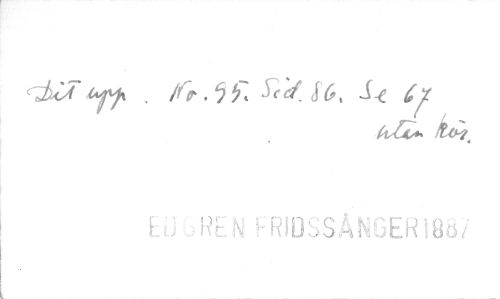 Dit upp. No. 95. Sid. 86. Se 67
utan kör.
EDGREN FRIDSSÅNGER 1887